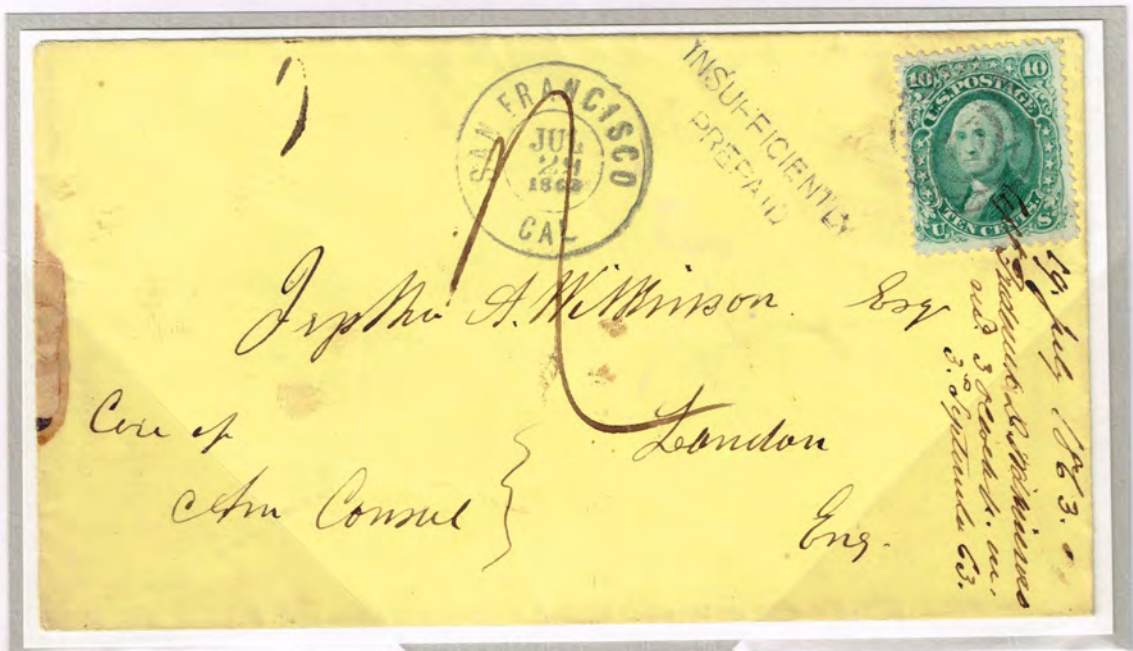 SAN FRANCISCO
JUL
29
1863
CAL
INSUFFICIENTLY
PREPAID
10 10
U.S. POSTAGE
TEN CENTS
U S
Jeptha A. Wilkinson Esq
Care of
Am Consul
London
Eng.
29 July 1863.
3
3. September 63.